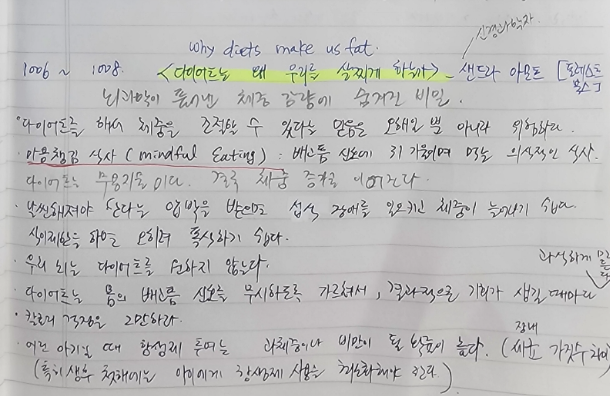 신경과학자
why diets make us fat.
1006 ~ 1008. <다이어트는 왜 우리를 살찌게 하는가> - 샌드라 아모트 [포레스트 북스]
뇌과학이 풀어낸 체중 감량에 숨겨진 비밀.
· 다이어트를 해서 체중을 조절할 수 있다는 믿음은 오해일 뿐 아니라 위험하다.
· 마음챙김 식사 (mindful Eating) : 배고픔 신호에 귀 기울이며 먹는 의식적인 식사.
다이어트는 무용지물이다. 결국 체중 증가로 이어진다.
· 날씬해져야 한다는 압박을 받으면 섭식 장애를 일으키고 체중이 늘어나기 쉽다.
식이제한을 하면 오히려 폭식하기 쉽다.
· 우리 뇌는 다이어트를 원하지 않는다.
· 다이어트는 몸의 배고픔 신호를 무시하도록 가르쳐서, 결과적으로 기회가 생길 때마다 과식하게 만든다
· 칼로리 걱정은 그만하라.
· 어린 아기일 때 항생제 투여는 과체중이나 비만이 될 확률이 높다. (장내 세균 가짓수 차이)
(특히 생후 첫해에는 아이에게 항생제 사용을 최소화해야 한다.)